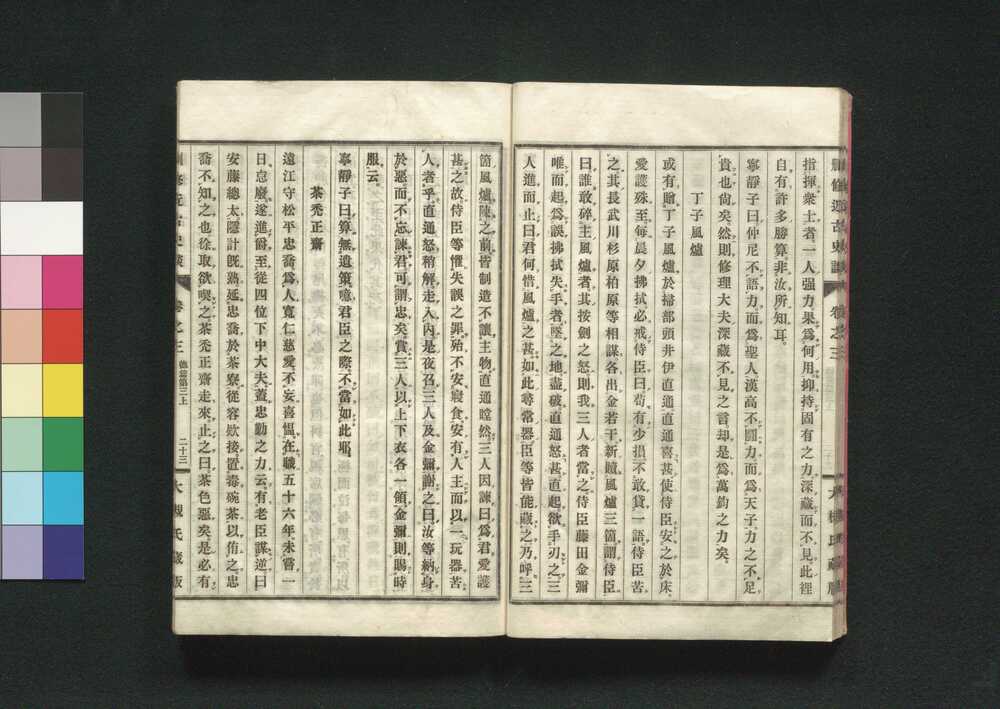 刪修近古史談 卷之三 大槻氏藏版
指揮衆士者一人强力果爲何用抑持固有之力深藏而不見此裡
自有許多勝算非汝所知耳
寧靜子曰仲尼不語力而爲聖人漢高不鬪力而爲天子力之不足
貴也尙矣然則修理大夫深藏不見之言却是爲萬鈞之力矣
丁子風爐
或有贈丁子風爐於掃部頭井伊直通直通喜甚使侍臣安之於床
愛護殊至每晨夕拂拭必戒侍臣曰苟有少損不敢貸一語侍臣苦
之其長武川杉原柏原等相謀各出金若干新贖風爐三箇謂侍臣
曰誰敢碎主風爐者其按劍之怒則我三人者當之侍臣藤田金彌
唯而起爲誤拂拭失手者墜之地盡破直通怒甚直起欲手刃之三
人進而止曰君何惜風爐之甚如此尋常器臣等皆能藏之乃呼三
箇風爐陳之前皆制造不讓主物直通瞠然三人因諫曰爲君愛護
甚之故侍臣等懼失誤之罪殆不安寢食安有人主而以一玩器苦
人者乎直通怒稍解走入內是夜召三人及金彌謝之曰汝等納身
於惡而不忘諫君可謂忠矣賞三人以上下衣各一領金彌則賜時
服云
寧靜子曰算無遺策噫君臣之際不當如此耶
茶禿正齋
遠江守松平忠喬爲人寬仁慈愛不妄喜慍在職五十六年未嘗一
日怠廢遂進爵至從四位下中大夫蓋忠勤之力云有老臣謀逆曰
安藤總太隱計旣熟延忠喬於茶寮從容欵接置毒碗茶以侑之忠
喬不知之也徐取欲喫之茶禿正齋走來止之曰茶色惡矣是必有
刪修近古史談 卷之三 德篇第三上 二十三 大槻氏藏版